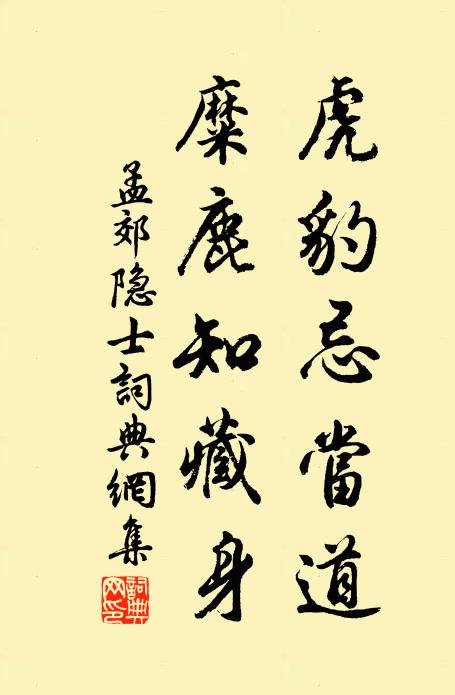 虎豹忌當道
麋鹿知藏身
孟郊隐士詞典網集
詞典網印